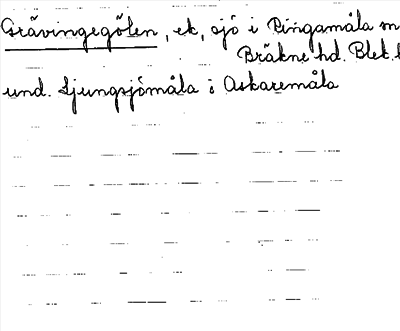 Grävingegölen, ek, sjö i Ringamåla
Bräkne hd. Blek.
und. Ljungsjömåla i Askaremåla